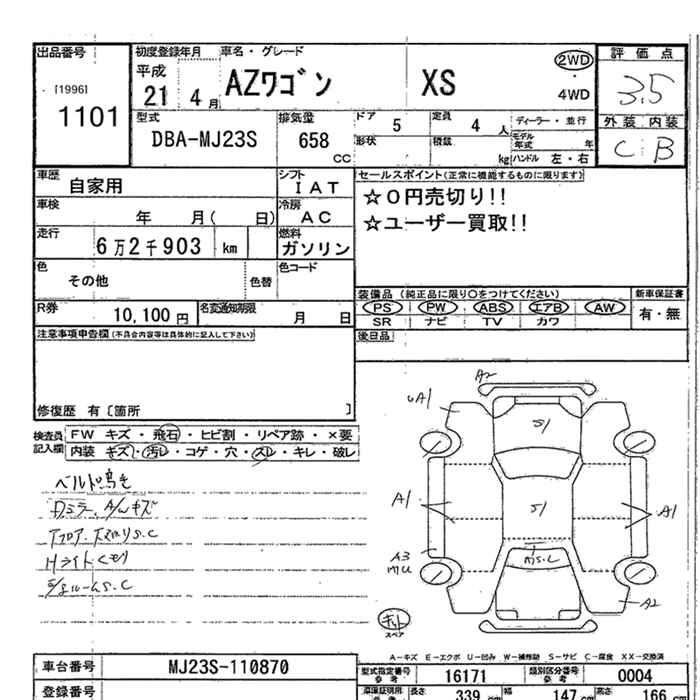 出品番号 初度登録年月 車名・グレード 評価点
[1996]
1101
平成 21 4月 AZワゴン XS 2WD・4WD 3.5
型式 DBA-MJ23S 排気量 658 CC
ドア 5 定員 4人 ディーラー・並行
形状 積載 kg モデル年式 年 ハンドル 左・右
外装 内装
C B
車歴 自家用 シフト IAT
車検 年 月( 日) 冷房 AC
走行 6万2千903 km 燃料 ガソリン
色 その他 色替 色コード
R券 10,100円 名変通知期限 月 日
セールスポイント(正常に機能するものに限ります)
☆0円売切り!!
☆ユーザー買取!!
装備品 (純正品に限り○をつけてください) 新車保証書
PS PW ABS エアB AW 有・無
SR ナビ TV カワ
後日品
注意事項申告欄(不具合内容等は具体的に記入して下さい)
修復歴 有〔箇所 〕
検査員記入欄
FW キズ・飛石・ヒビ割・リペア跡・×要
内装 キズ・汚レ・コゲ・穴・スレ・キレ・破レ
ベルト鳴き
Dミラー、A/Wキズ
Hライトくもり
A2
A1
S/
A1
S/
A1
A3
A2
キット
スペア
A-キズ E-エクボ U-凹み W-補修跡 S-サビ C-腐食 XX-交換済
車台番号 MJ23S-110870
登録番号
型式指定番号 参考 16171 類別区分番号 参考 0004
長さ 339 cm 幅 147 cm 高さ 166 cm